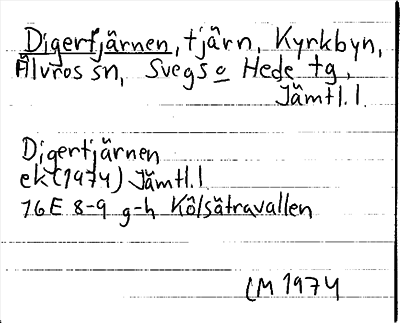 Digertjärnen, tjärn, Kyrkbyn,
Älvros sn, Svegs o Hede tg,
Jämtl. l.
Digertjärnen
ek (1974) Jämtl. l
16E 8-9 g-h Kölsätravallen
LM 1974